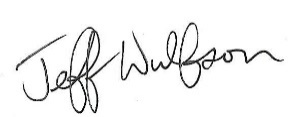 Jeff Wulfson